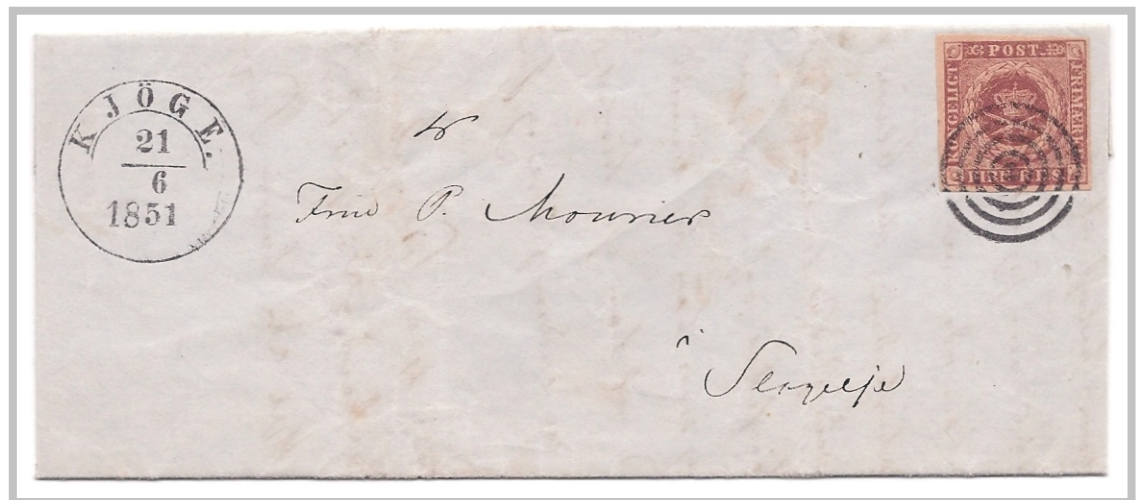 KJÖGE.
21
6
1851
KONGELIGT
POST
FRIMÆRKE
FIRE R.B.S.
Frue P. Mourier
i
Slagelse